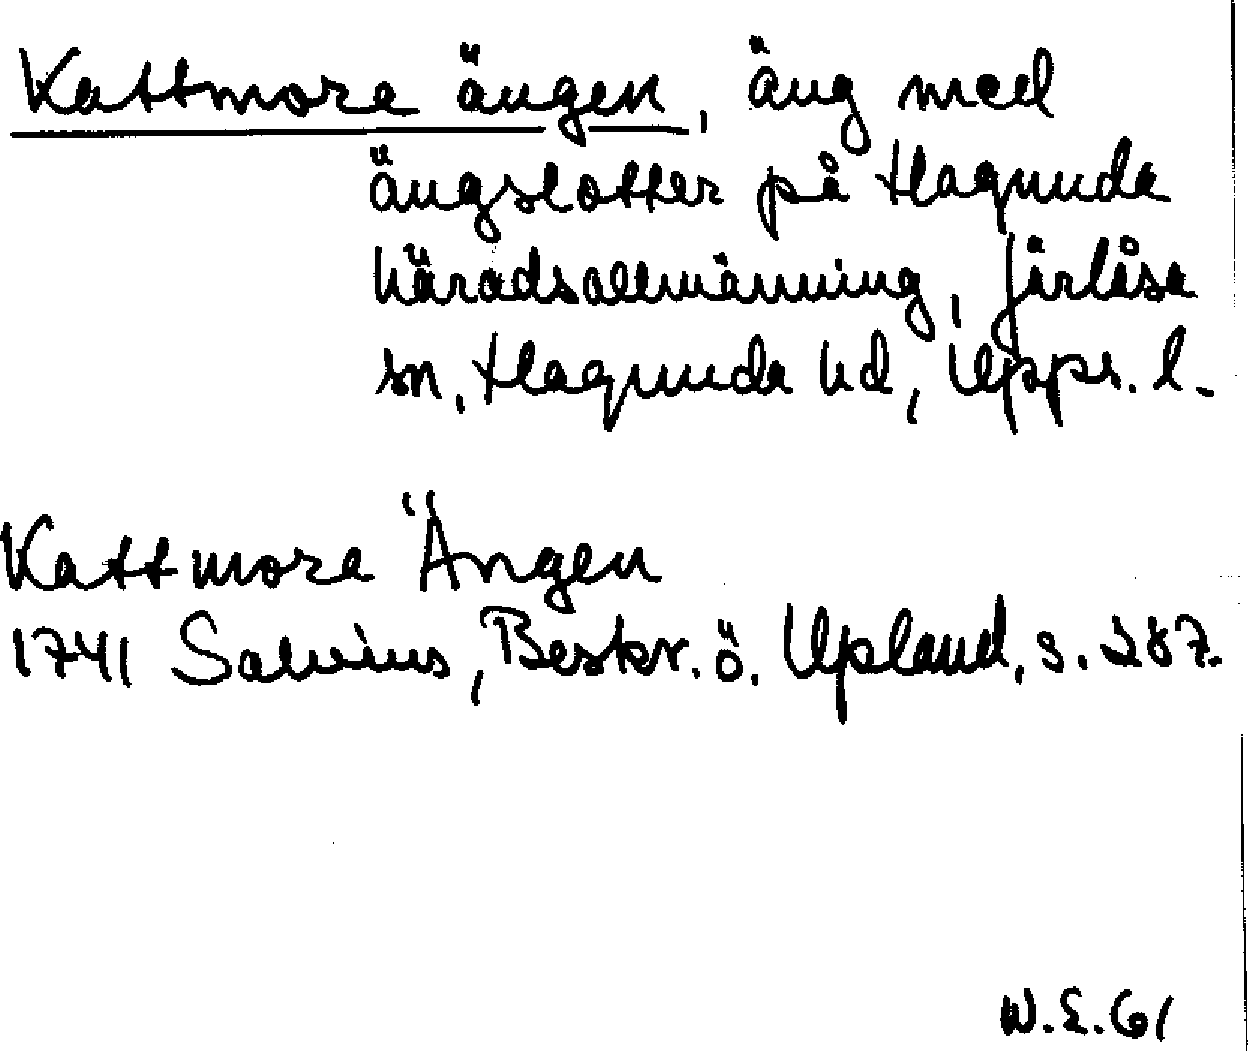 Kattmora ängen, äng med
ängslotter på Hagunda
häradsallmänning, Järlåsa
sn, Hagunda hd, Uppl. l.
Kattmora Ängen
1741 Salvius, Beskr. ö. Upland, s. 287.
W.E.61